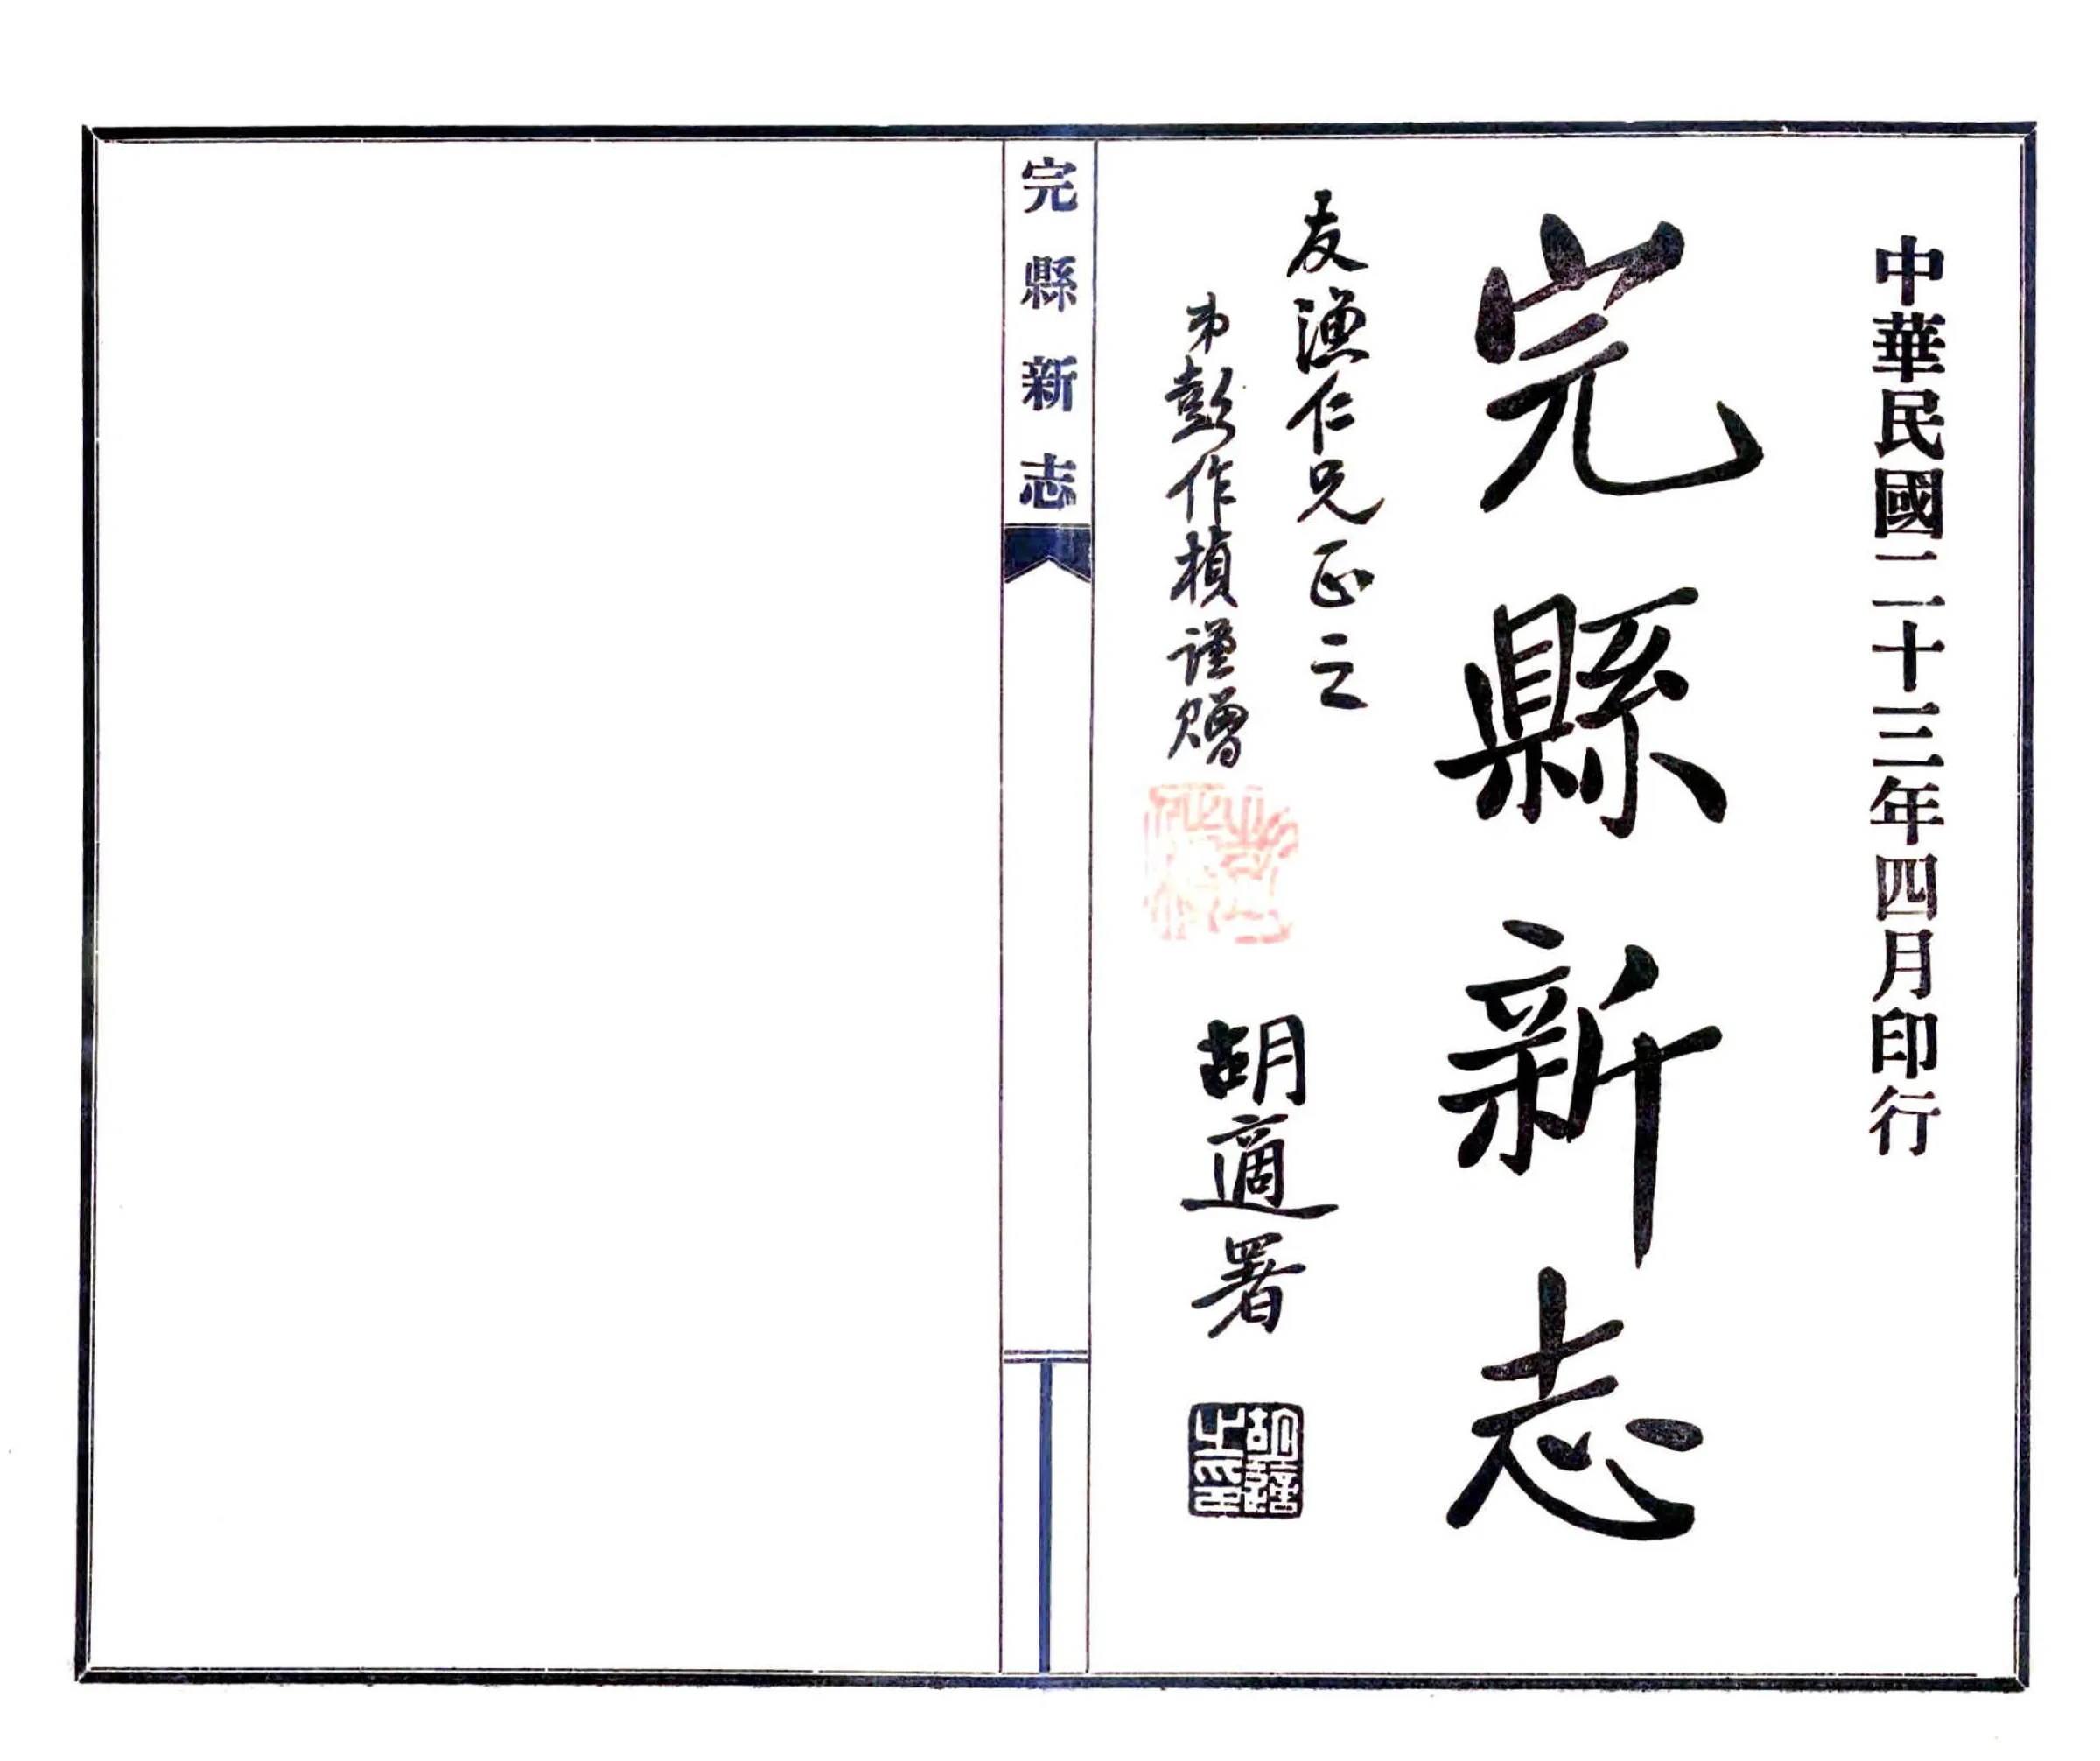 中華民國二十三年四月印行
完縣新志
友漁仁兄正之
弟彭作楨謹贈
胡適署
胡適之印
完縣新志